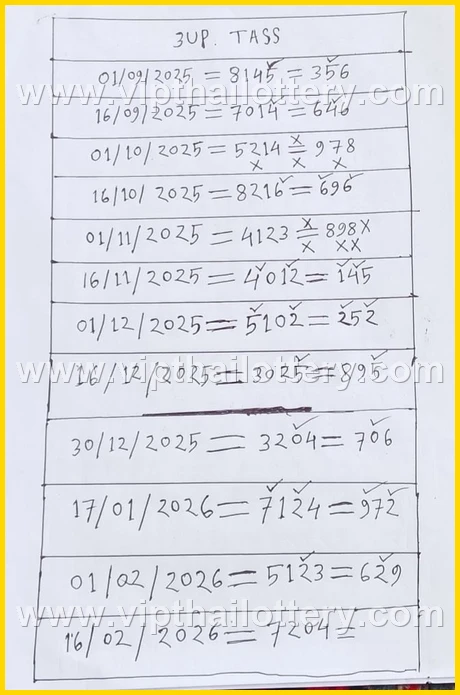 3UP. TASS
01/09/2025 = 8145 = 356
www.vipthailottery.com
16/09/2025 = 7014 = 646
01/10/2025 = 5214 = 978
16/10/2025 = 8216 = 696
01/11/2025 = 4123 = 898
16/11/2025 = 4012 = 145
01/12/2025 = 5102 = 252
16/12/2025 = 3025 = 895
www.vipthailottery.com
30/12/2025 = 3204 = 706
17/01/2026 = 7124 = 972
01/02/2026 = 5123 = 629
www.vipthailottery.com
16/02/2026 = 7204 =